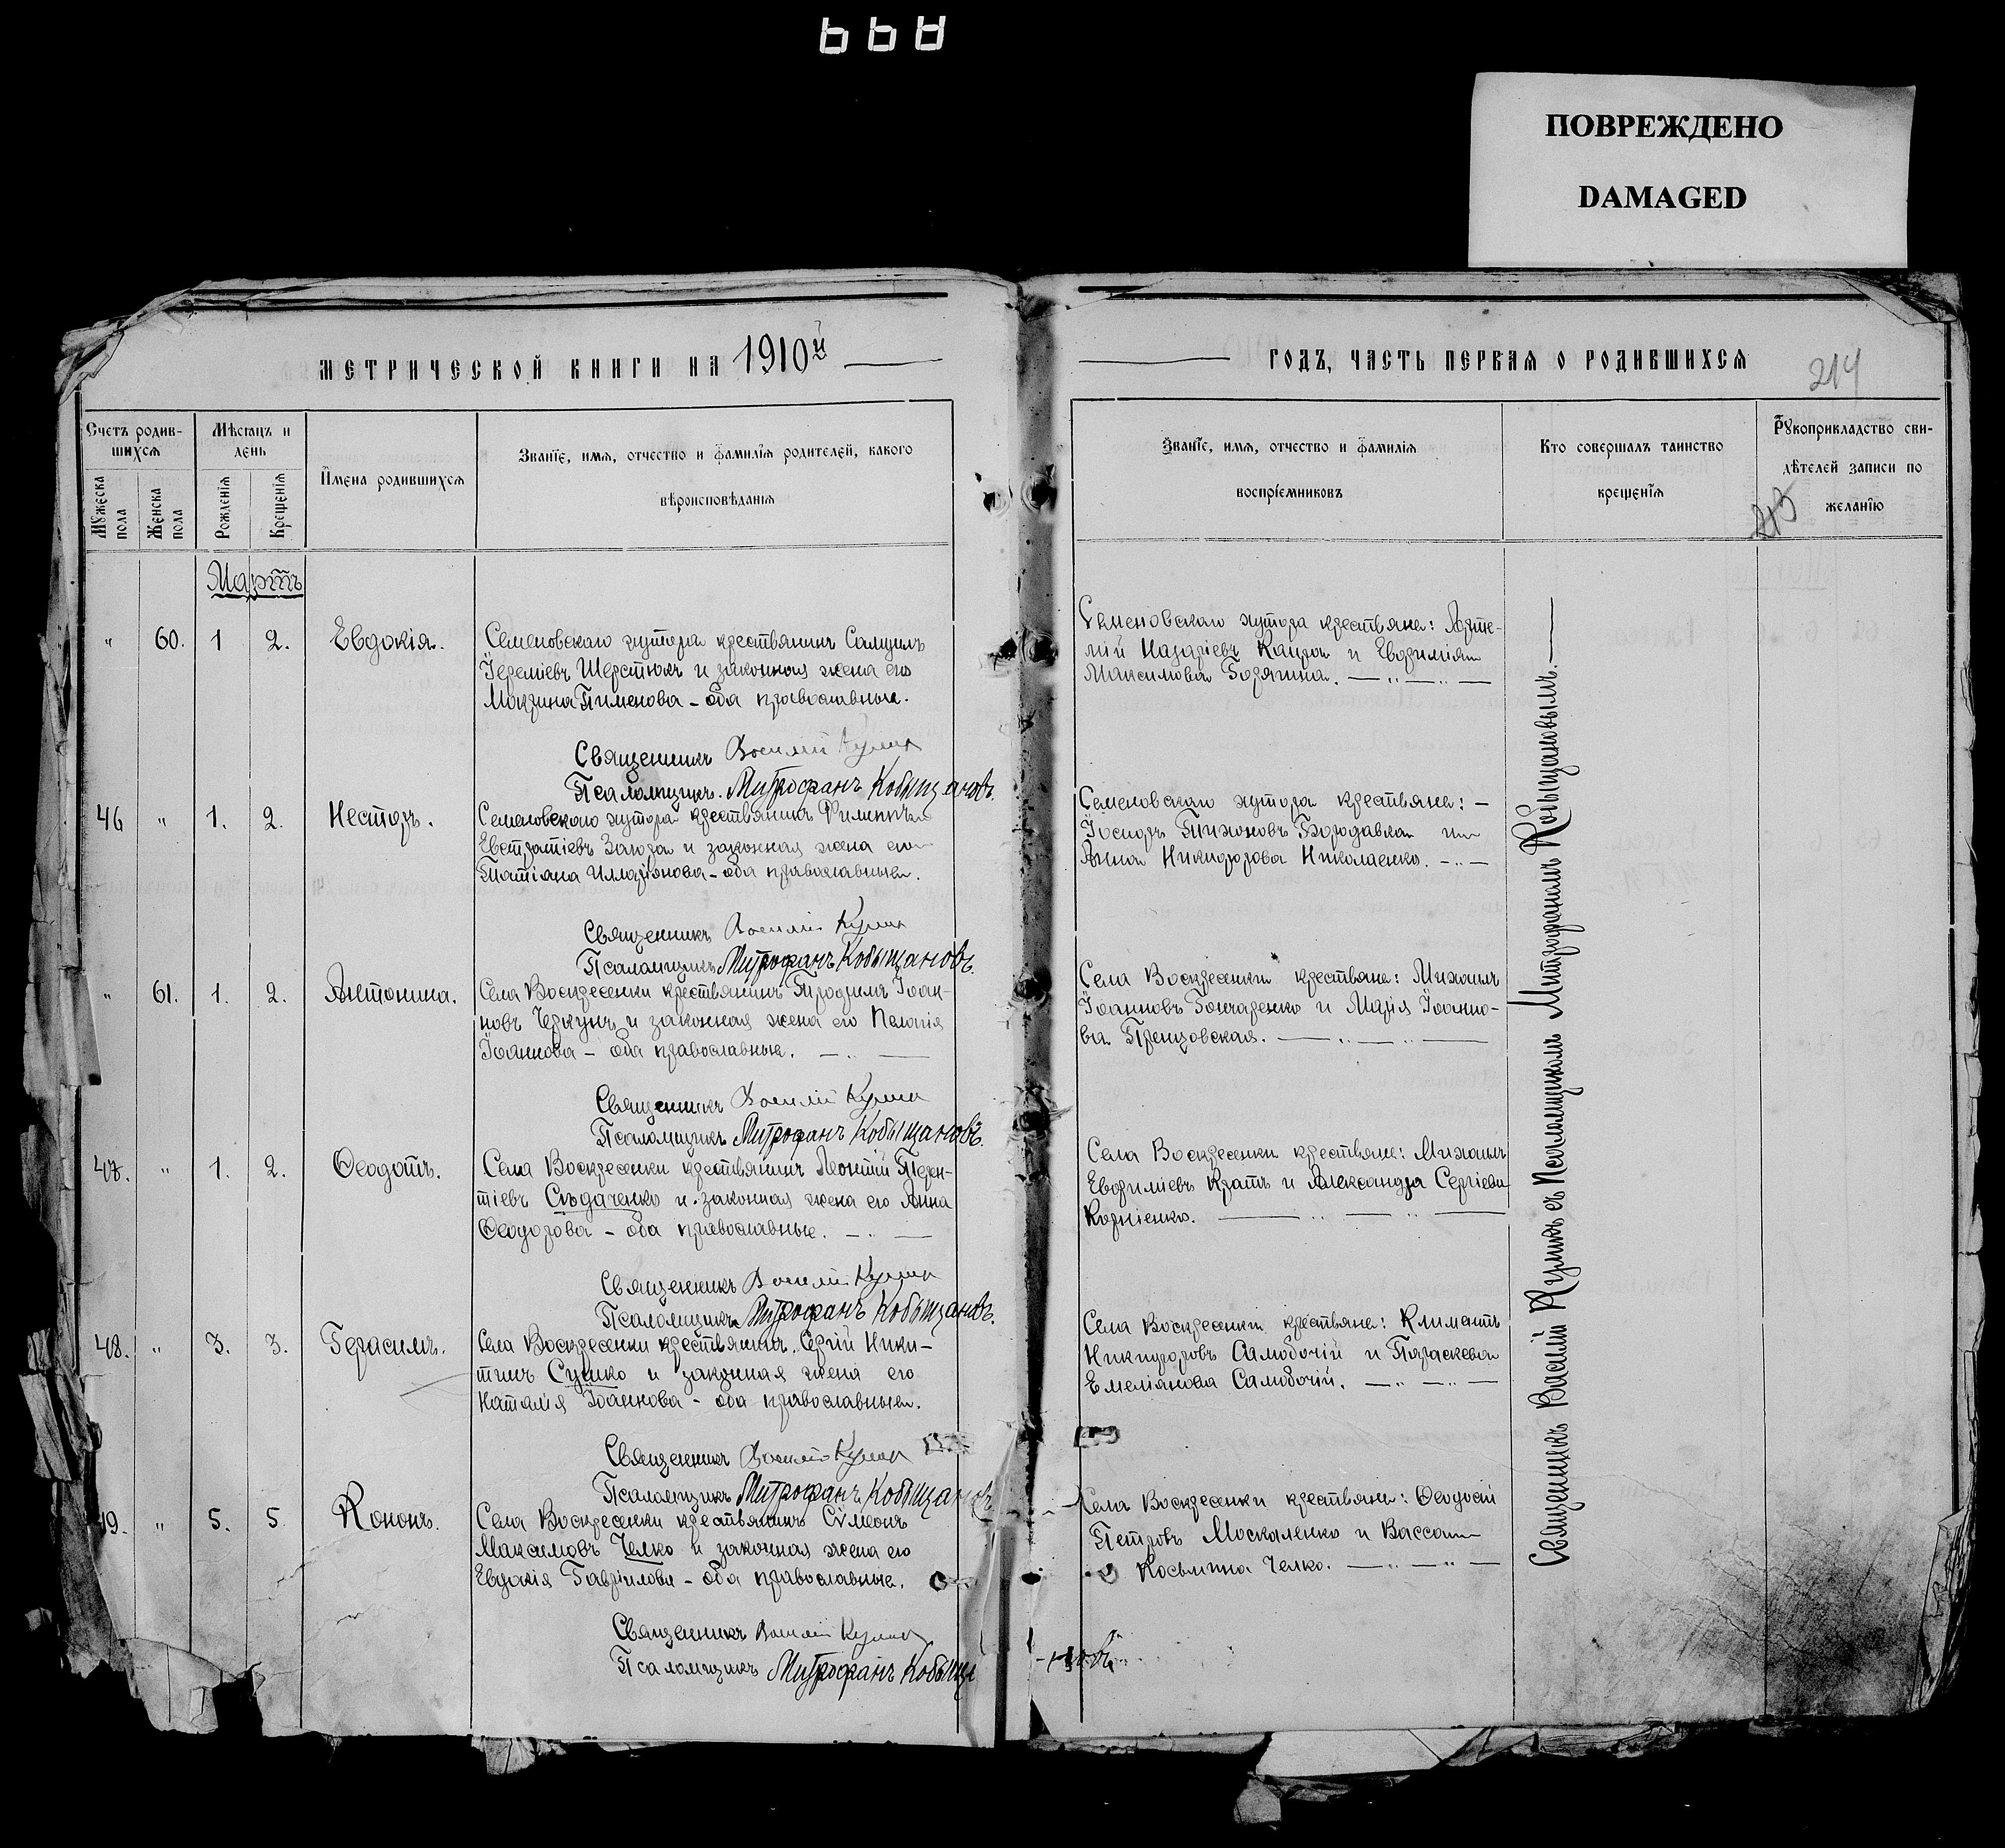 ПОВРЕЖДЕНО
DAMAGED
МЕТРИЧЕСКОЙ КНИГИ НА 1910й
ГОДЪ, ЧАСТЬ ПЕРВАЯ О РОДИВШИХСЯ
214
Счетъ родив-
шихся
Мужеска пола
Женска пола
Мѣсяцъ и
день
Рожденія
Крещенія
Имена родившихся
Званіе, имя, отчество и фамилія родителей, какого
вѣроисповѣданія
Званіе, имя, отчество и фамилія
воспріемниковъ
Кто совершалъ таинство
крещенія
Рукоприкладство сви-
дѣтелей записи по
желанію
213
Мартъ
" 60. 1 2. Евдокія.
Семеновскаго хутора крестьянинъ Самуилъ
Іереміевъ Шерстюкъ и законная жена его
Макрина Пименова - оба православные.
Семеновскаго хутора крестьяне: Арте-
мій Назаріевъ Кацюра и Евфимія
Максимова Горяина.
Священникъ Василій Куликъ
Псаломщикъ. Митрофанъ Кобыщановъ.
46 " 1. 2. Несторъ.
Семеновскаго хутора крестьянинъ Филиппъ
Евстратіевъ Загора и законная жена его
Татіана Илларіонова - оба православные.
Семеновскаго хутора крестьяне: -
Іосифъ Тихоновъ Бородавка и
Анна Никифорова Николаенко.
Священникъ Василій Куликъ
Псаломщикъ Митрофанъ Кобыщановъ.
" 61. 1. 2. Антонина.
Села Воскресенки крестьянинъ Трофимъ Іоан-
новъ Черкунъ и законная жена его Пелагія
Іоаннова - оба православные.
Села Воскресенки крестьяне: Михаилъ
Іоанновъ Гончаренко и Марія Іоанно-
ва Тренцовская.
Священникъ Василій Куликъ
Псаломщикъ Митрофанъ Кобыщановъ.
47. " 1. 2. Ѳеодотъ.
Села Воскресенки крестьянинъ Леонтій Терен-
тіевъ Сѣдаченко и законная жена его Анна
Ѳеодорова - оба православные.
Села Воскресенки крестьяне: Михаилъ
Евфиміевъ Кратъ и Александра Сергіева
Корніенко.
Священникъ Василій Куликъ
Псаломщикъ Митрофанъ Кобыщановъ.
48. " 3. 3. Герасимъ.
Села Воскресенки крестьянинъ Сергій Ники-
тинъ Сушко и законная жена его
Наталія Іоаннова - оба православные.
Села Воскресенки крестьяне: Климентъ
Никифоровъ Самобочій и Параскева
Емеліянова Самобочій.
Священникъ Василій Куликъ
Псаломщикъ Митрофанъ Кобыщановъ
49. " 5. 5 Кононъ.
Села Воскресенки крестьянинъ Сѵмеонъ
Максимовъ Челко и законная жена его
Евдокія Гавріилова - оба православные.
Села Воскресенки крестьяне: Ѳеодосій
Петровъ Москаленко и Васса
Косьмина Челко.
Священникъ Василій Куликъ
Псаломщикъ Митрофанъ Кобыщановъ
Священникъ Василій Куликъ съ Псаломщикомъ Митрофаномъ Кобыщановымъ.